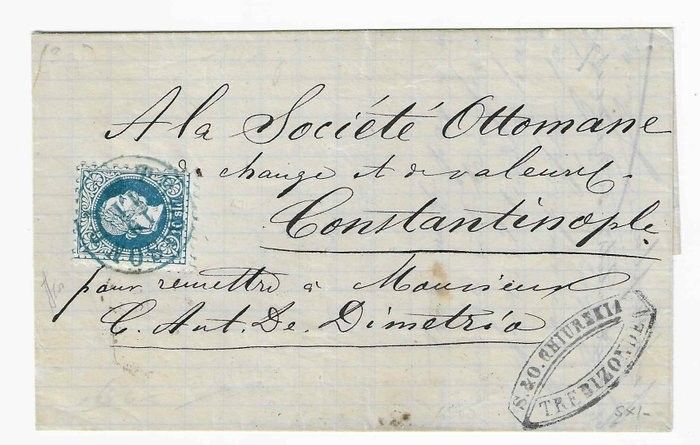 A la Société Ottomane
change et de valeurs
Constantinople
pour remettre à Monsieur
C. Ant. De Dimetrio
S. & O. CHIUREKIA
TREBIZONDE
SOL